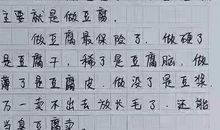 主要就是做豆腐.
做豆腐最保险了.做硬了
是豆腐干，稀了是豆腐脑，做
薄了是豆腐皮，做没了是豆浆，
万一卖不出去放长毛了.还能
当臭豆腐卖.